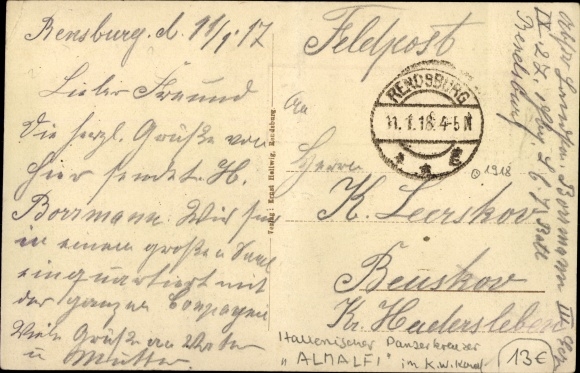 Rensburg. d. 11/1.17
Lieber Freund
Die herzl. Grüße von
hier sendet H.
Borrmann. Wir sin
in einem großen Saal
einquartiert mit
der ganzen Compagen
Viele Grüße an Vater
u Mutter.
Verlag: Ernst Hellwig, Rendsburg.
Feldpost
RENDSBURG
11.1.18. 4-5 N
1918
An
Herrn
K. Leerskov
Beuskov
Kr. Hadersleben
Borrmann III
Rendsburg
Italienischer Panzerkreuzer
"ALMALFI" im K.W. Kanal
13€